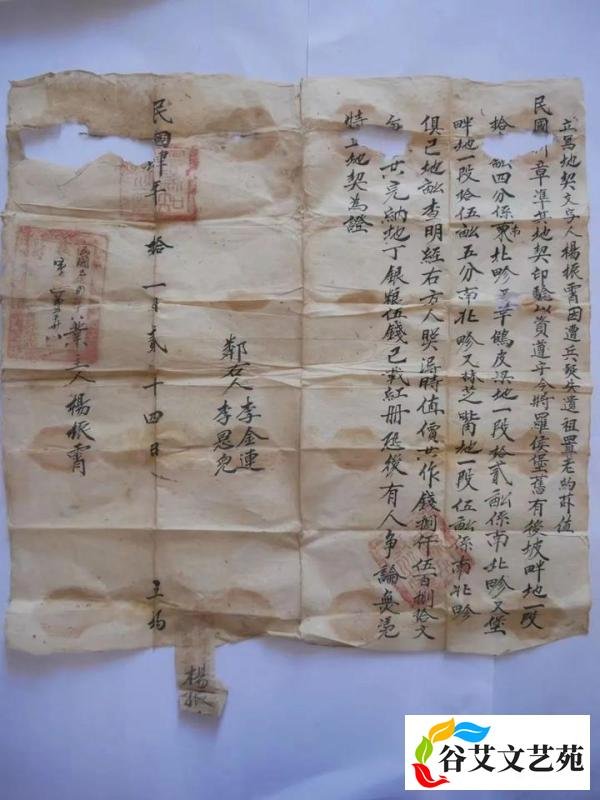 立写地契文字人楊振霄因遭兵燹失遺祖置老約茲值
民國 章準其地契印驗以資遵守今將羅侯堡舊有後坡畔地一段
拾 畝四分係東北畛又草鶴皮梁地一段拾貳畝係南北畛又堡
畔地一段拾伍畝五分南北畛又林芝嘴地一段伍畝係南北畛
俱已地畝查明經右方人眼濤時值價共作錢捌仟伍百捌拾文
每 完納地丁銀粮伍錢已載紅册恐後有人争論無憑
特立地契為證
鄰右人李金連
李恩
民國肆年 拾一月貳十四日
業主人楊振霄
楊振
谷艾文艺苑